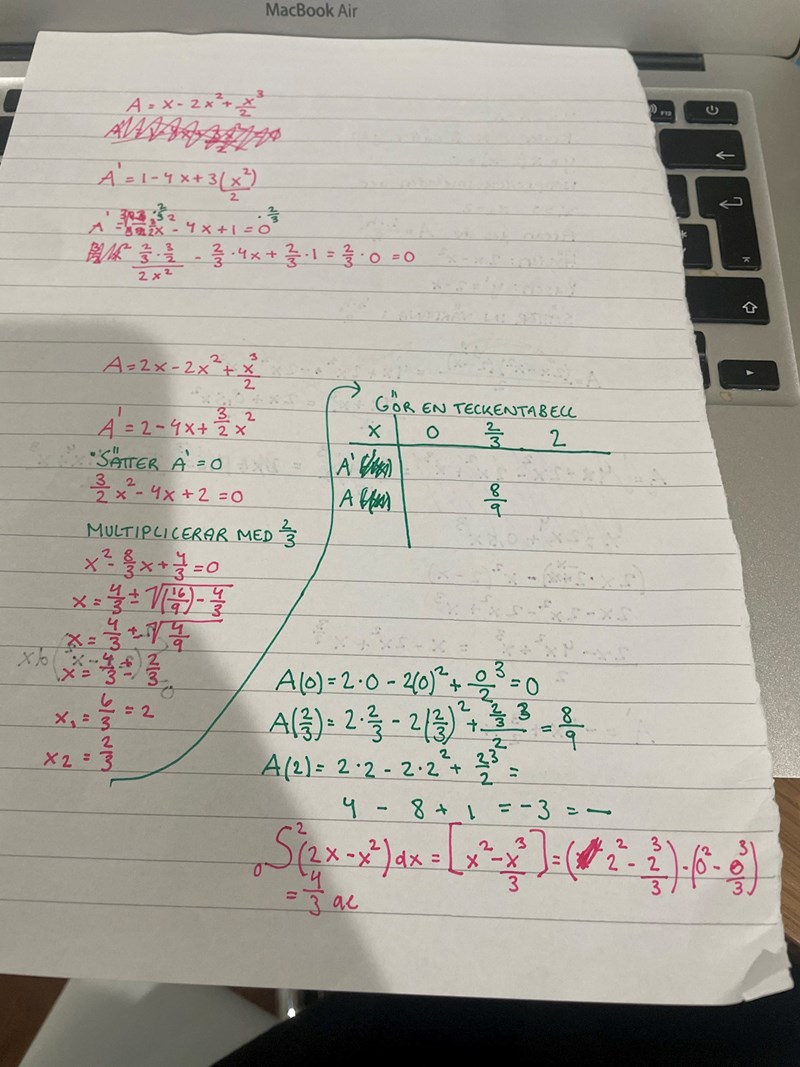 MacBook Air
A = x - 2x² + x³/2
A' = 1 - 4x + 3(x²)/2
x - 4x + 1 = 0 · 2/3
2/3 · 3/2 / 2x² - 2/3 · 4x + 2/3 · 1 = 2/3 · 0 = 0
A = 2x - 2x² + x³/2
A' = 2 - 4x + 3/2 x²
SÄTTER A' = 0
3/2 x² - 4x + 2 = 0
MULTIPLICERAR MED 2/3
x² - 8/3 x + 4/3 = 0
x = 4/3 ± √(16/9) - 4/3
x = 4/3 ± √4/9
x = 4/3 ± 2/3
x₁ = 6/3 = 2
x₂ = 2/3
GÖR EN TECKENTABELL
x 0 2/3 2
A'
A 8/9
A(0) = 2·0 - 2(0)² + 0³/2 = 0
A(2/3) = 2·2/3 - 2(2/3)² + 2/3³/2 = 8/9
A(2) = 2·2 - 2·2² + 2³/2 =
4 - 8 + 1 = -3 = —
₀∫²(2x - x²)dx = [x² - x³/3] = (2² - 2³/3) - (0² - 0³/3)
= 4/3 ae